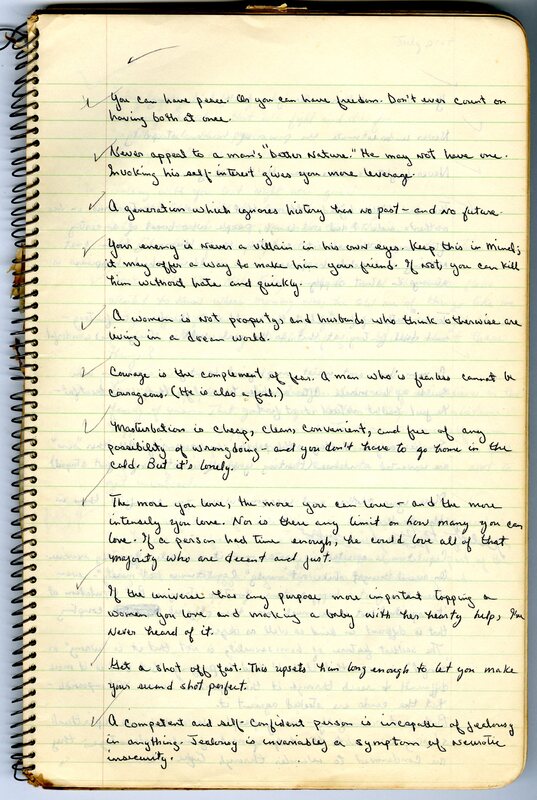 You can have peace. Or you can have freedom. Don't ever count on
having both at once.
Never appeal to a man's "better nature." He may not have one.
Invoking his self-interest gives you more leverage.
A generation which ignores history has no past - and no future.
Your enemy is never a villain in his own eyes. Keep this in mind;
it may offer a way to make him your friend. If not, you can kill
him without hate and quickly.
A women is not property, and husbands who think otherwise are
living in a dream world.
Courage is the complement of fear. A man who is fearless cannot be
courageous. (He is also a fool.)
Masterbation is cheap, clean, convenient, and free of any
possibility of wrongdoing - and you don't have to go home in the
cold. But it's lonely.
The more you love, the more you can love - and the more
intensely you love. Nor is there any limit on how many you can
love. If a person had time enough, he could love all of that
majority who are decent and just.
If the universe has any purpose more important topping a
women you love and making a baby with her hearty help, I've
never heard of it.
Get a shot off fast. This upsets him long enough to let you make
your second shot perfect.
A competent and self-confident person is incapable of jealousy
in anything. Jealousy is invariably a symptom of neurotic
insecurity.